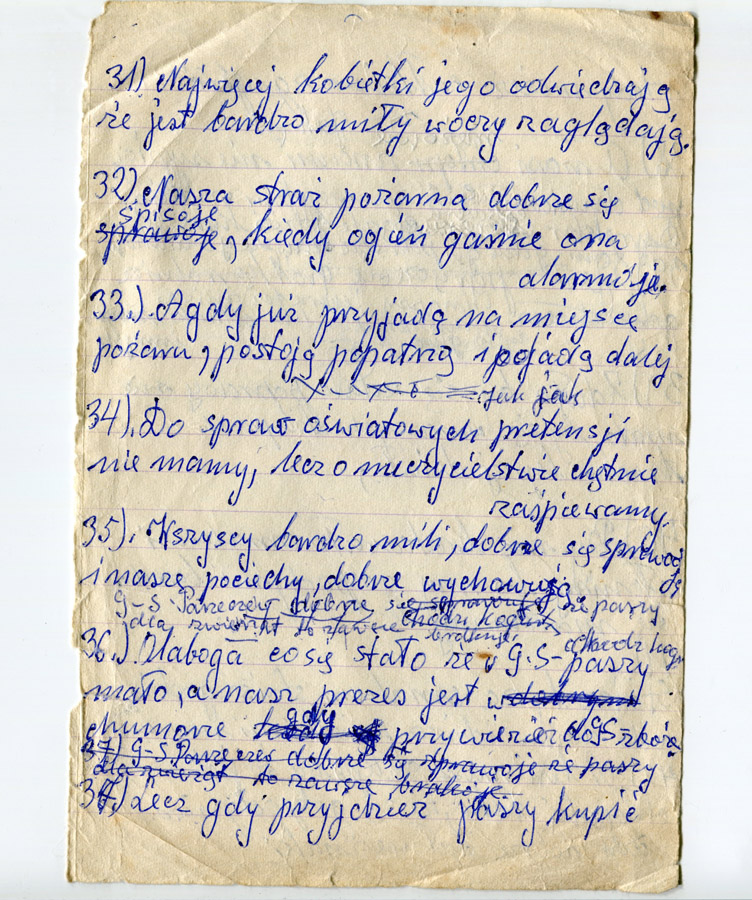 31) Najwięcej kobietki jego odwiedzają
że jest bardzo miły w oczy zaglądają.
32). Nasza straż pożarna dobrze się
spisoje
sprawoje, kiedy ogień gaśnie ona
alarmoje.
33.). A gdy już przyjadą na miejsce
pożaru, postoją popatrzą i pojadą dalej
jak jak
34). Do spraw oświatowych pretensji
nie mamy, lecz o nauczycielstwie chętnie
zaśpiewamy.
35). Wszyscy bardzo mili, dobrze się sprawoją
i nasze pociechy, dobrze wychowują
G-S Parzeczew dobrze się sprawuje, że paszy
dla zwierząt to zawsze brakuje
36.) Olaboga co się stało że w G-S- paszy
mało, a nasz prezes jest w
chumorze gdy przywiezież do GS zboże
37) G-S. Parzeczew dobrze się sprawoje że paszy
dla zwierząt to zawsze brakoje
37.) Lecz gdy przyjdzież paszy kupić